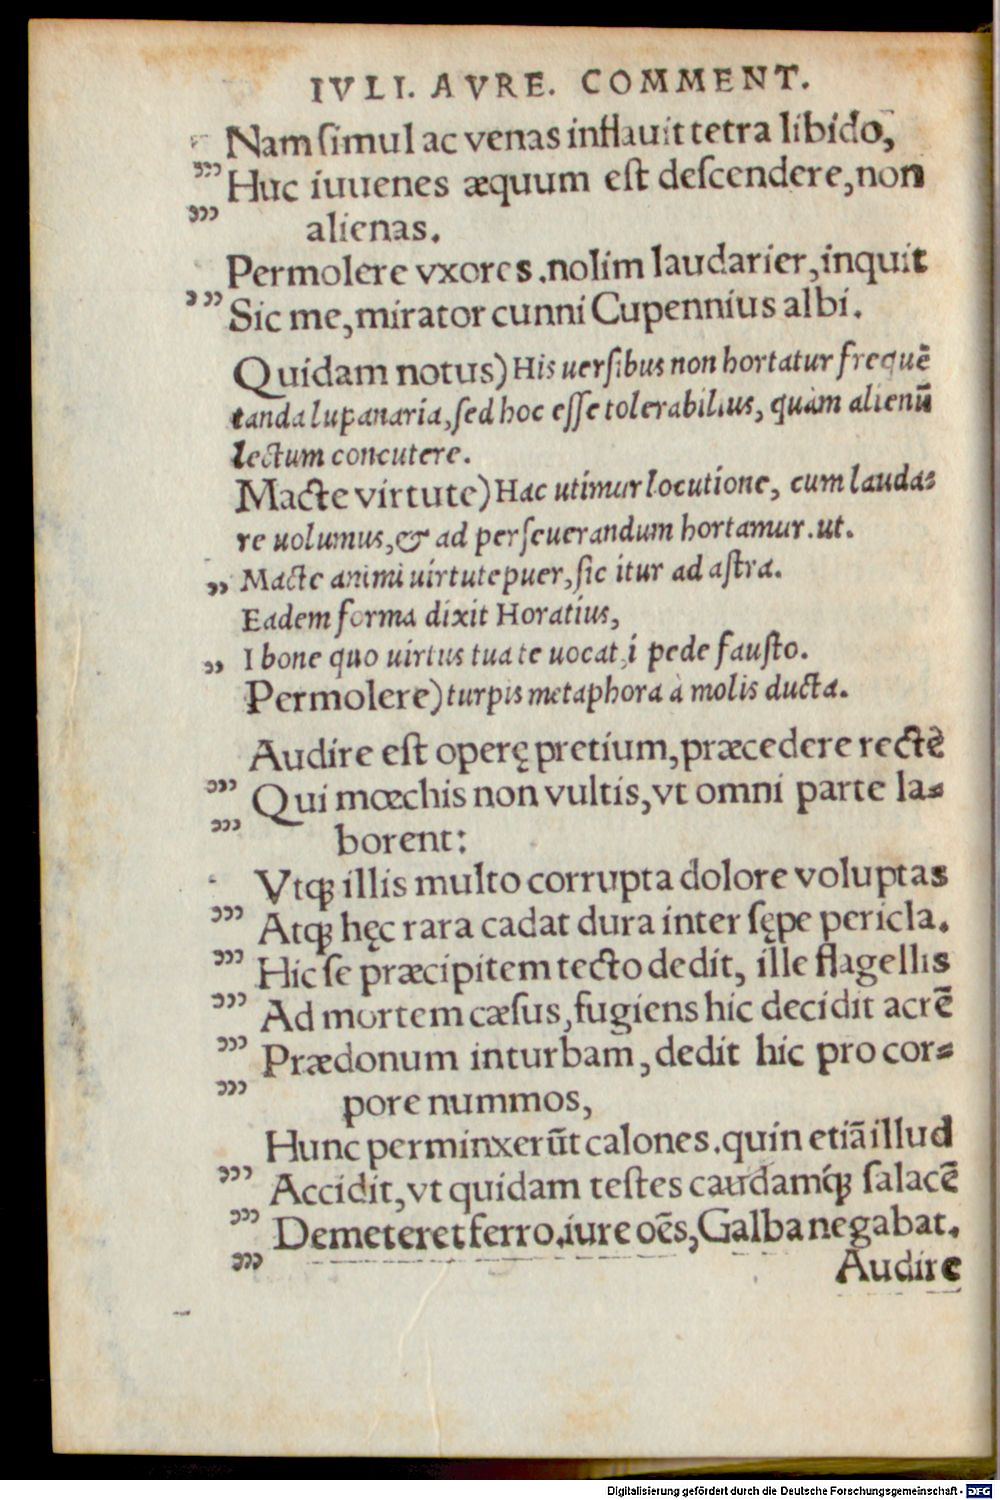 IVLI. AVRE. COMMENT.
Nam ſimul ac venas inflauit tetra libido,
„„ Huc iuuenes æquum eſt deſcendere, non
„„ alienas.
Permolere vxores .nolim laudarier, inquit
„„ Sic me, mirator cunni Cupennius albi.
Quidam notus) His uerſibus non hortatur frequē
tanda lupanaria, ſed hoc eſſe tolerabilius, quàm alienū
lectum concutere.
Macte virtute) Hac utimur locutione, cum lauda⸗
re uolumus, & ad perſeuerandum hortamur. ut.
„ Macte animi uirtute puer, ſic itur ad aſtra.
Eadem forma dixit Horatius,
„ I bone quo uirtus tua te uocat, i pede fauſto.
Permolere) turpis metaphora à molis ducta.
Audire eſt operę pretium, præcedere rectè
„„ Qui mœchis non vultis, vt omni parte la⸗
„„ borent:
Vtqꝫ illis multo corrupta dolore voluptas
„„ Atqꝫ hęc rara cadat dura inter ſępe pericla.
„„ Hic ſe præcipitem tecto dedit, ille flagellis
„„ Ad mortem cæſus, fugiens hic decidit acrē
„„ Prædonum in turbam, dedit hic pro cor⸗
„„ pore nummos,
Hunc perminxerūt calones. quin etiā illud
„„ Accidit, vt quidam teſtes caudamq́ꝫ ſalacē
„„ Demeteret ferro. iure oēs, Galba negabat.
„„ Audire
Digitalisierung gefördert durch die Deutsche Forschungsgemeinschaft - DFG